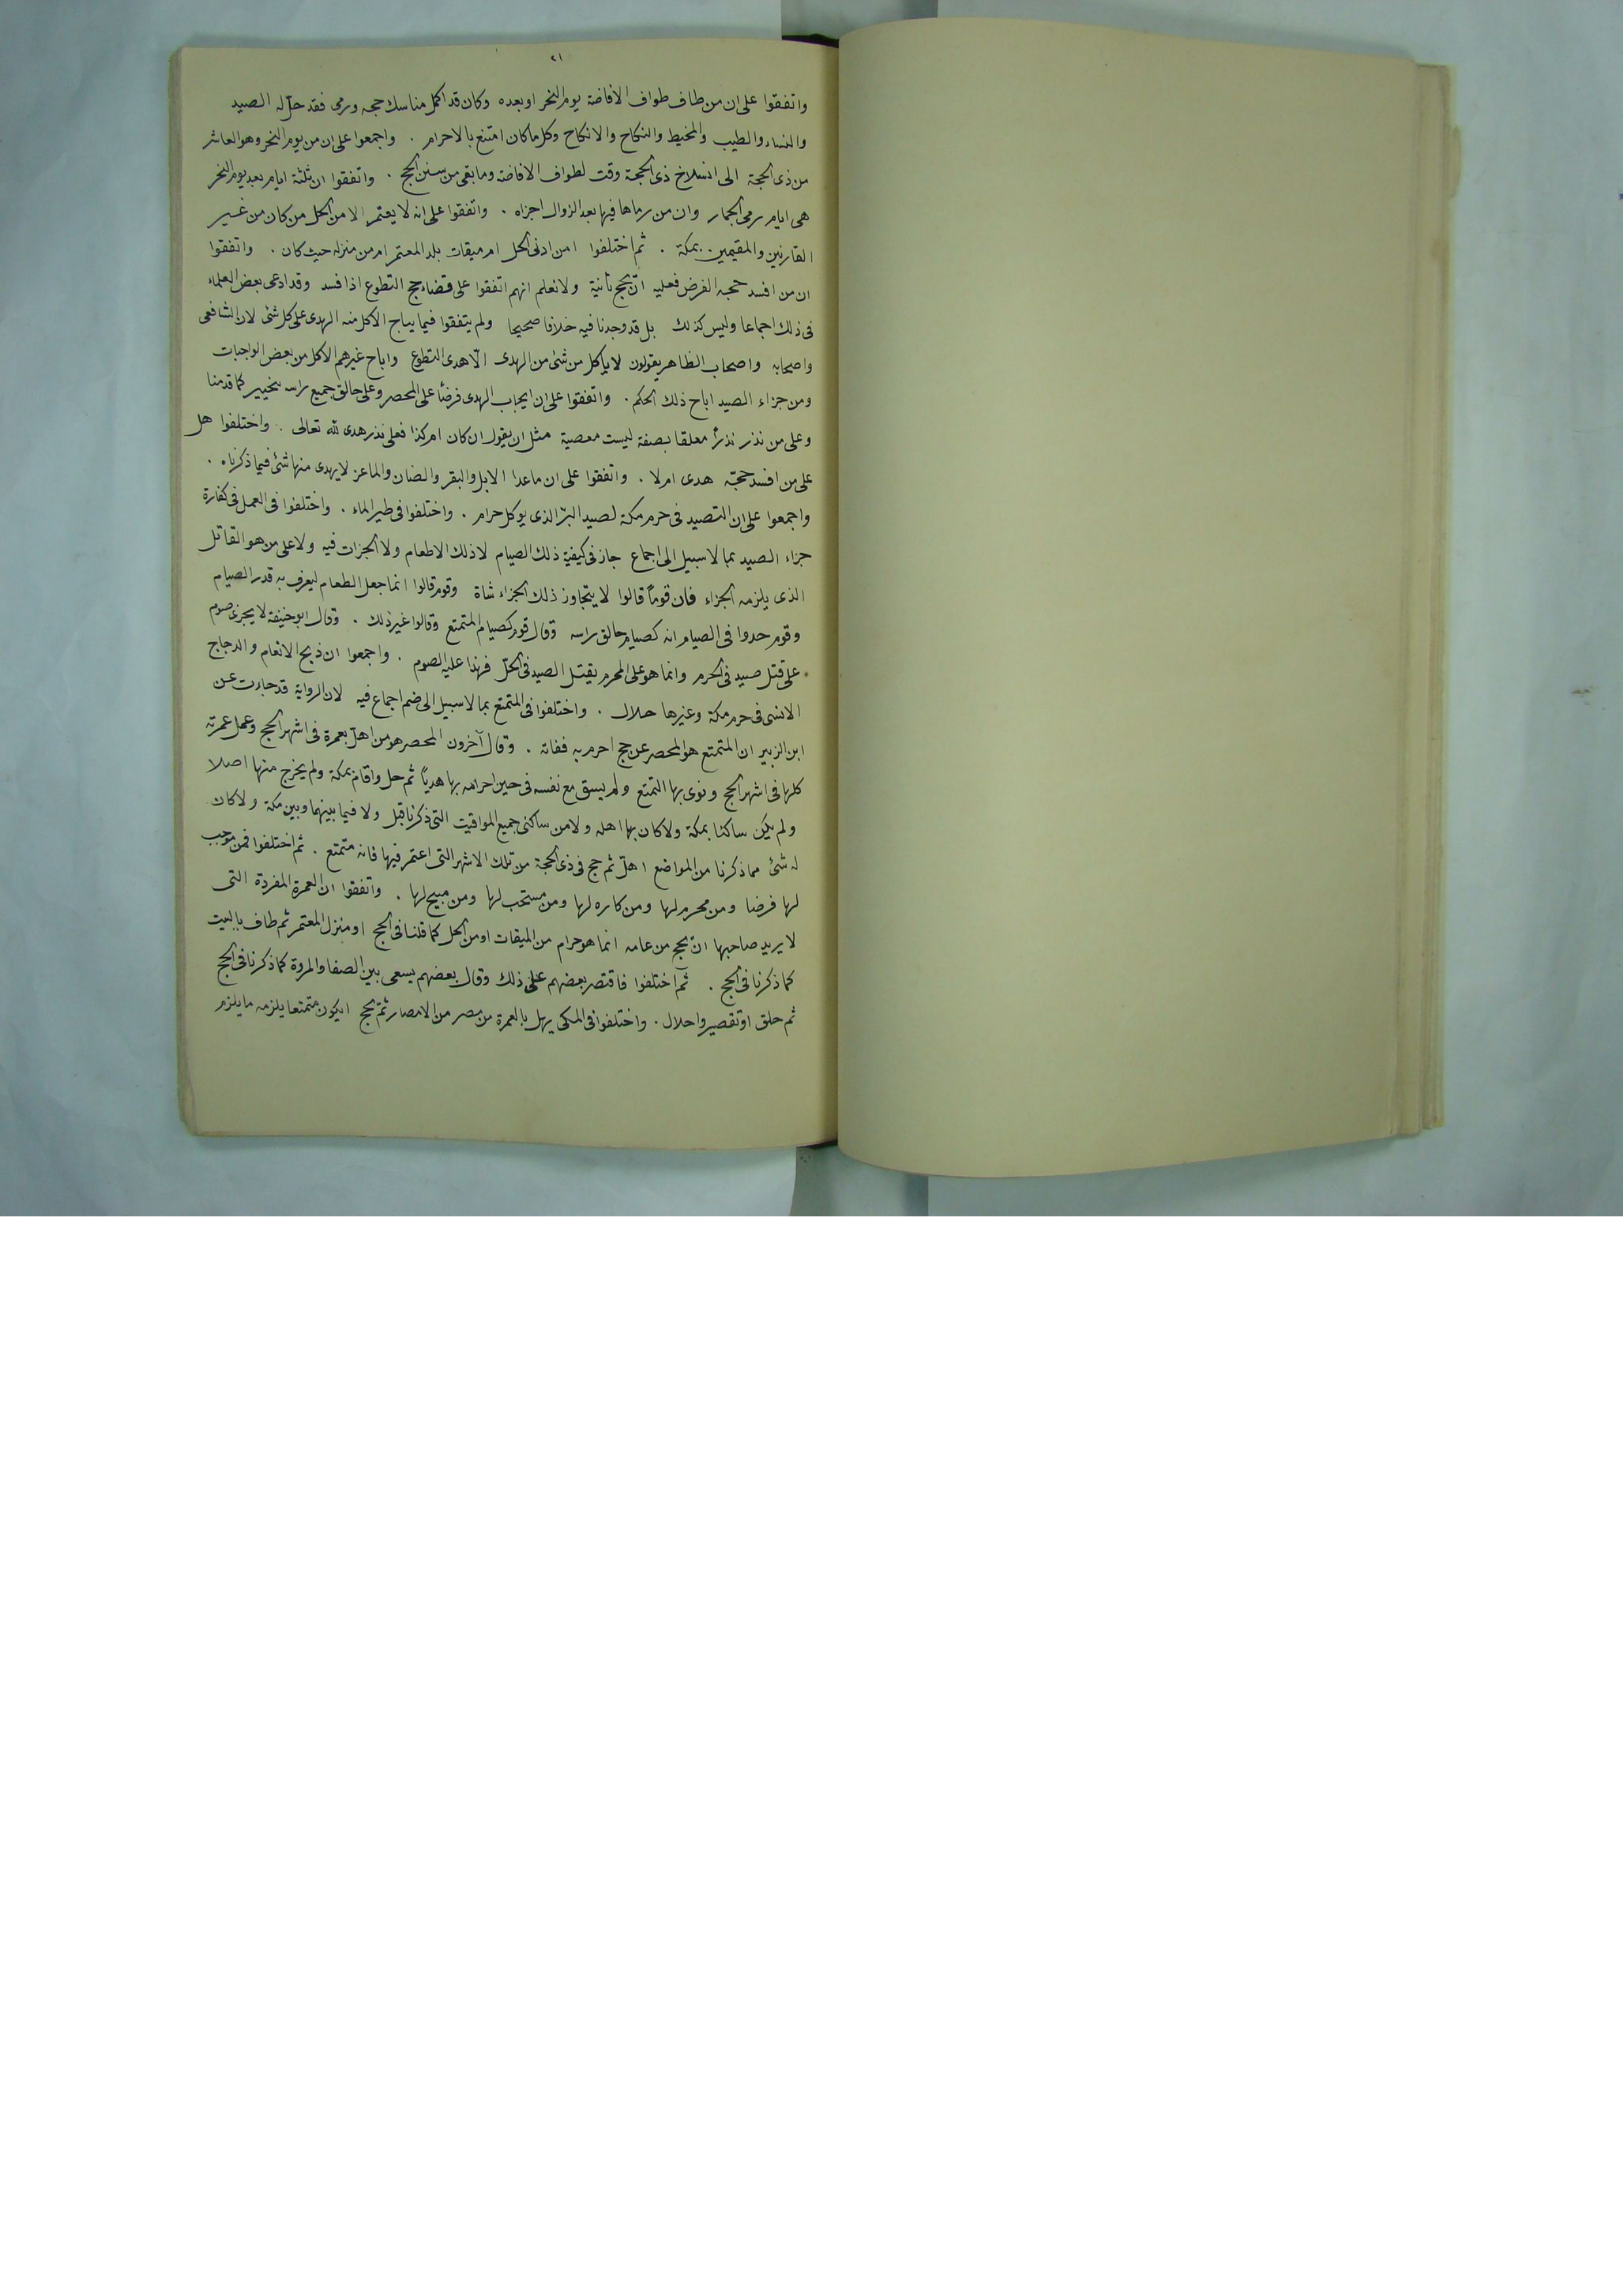 ٢١
واتفقوا على ان من طاف طواف الافاضة يوم النحر او بعده وكان قد اكمل مناسك حجه ورمى فقد حل له الصيد
والنساء والطيب والمخيط والنكاح والانكاح وكل ما كان امتنع بالاحرام . واجمعوا على ان من يوم النحر وهو العاشر
من ذى الحجة الى انسلاخ ذى الحجة وقت لطواف الافاضة وما بقى من سنن الحج . واتفقوا ان ثلثة ايام بعد يوم النحر
هى ايام رمى الجمار وان من رماها فيها بعد الزوال اجزاه . واتفقوا على انه لا يعتمر الا من الحل من كان من غير
القارنين والمقيمين بمكة . ثم اختلفوا امن ادنى الحل ام ميقات بلد المعتمر ام من منزله حيث كان . واتفقوا
ان من افسد حجه الفرض فعليه ان يحج ثانية ولا نعلم انهم اتفقوا على قضاء حج التطوع اذا فسد وقد ادعى بعض العلماء
فى ذلك اجماعا وليس كذلك بل قد وجدنا فيه خلافا صحيحا ولم يتفقوا فيما يباح الاكل منه الهدى على كل شئ لان الشافعى
واصحابه واصحاب الظاهر يقولون لا ياكل من شئ من الهدى الّا هدى التطوع واباح غيرهم الاكل من بعض الواجبات
ومن جزاء الصيد اباح ذلك الحكم . واتفقوا على ان ايجاب الهدى فرضاً على المحصر وعلى حالق جميع راسه بتخيير كما قدمنا
وعلى من نذر نذراً معلقا بصفة ليست معصية مثل ان يقول ان كان امر كذا فعلى نذر هدى لله تعالى . واختلفوا هل
على من افسد حجّه هدى ام لا . واتفقوا على ان ما عدا الابل والبقر والضان والماعز لا يهدى منها شئ فيما ذكرناه .
واجمعوا على ان التصيد فى حرم مكة لصيد البرّ الذى يوكل حرام . واختلفوا فى طير الماء . واختلفوا فى العمل فى كفارة
جزاء الصيد بما لا سبيل الى اجماع جاز فى كيفية ذلك الصيام لا ذلك الاطعام ولا الجزات فيه ولا على من هو القاتل
الذى يلزمه الجزاء فان قوماً قالوا لا يتجاوز ذلك الجزاء شاة وقوم قالوا انما جعل الطعام ليعرف به قدر الصيام
وقوم حدوا فى الصيام انه كصيام حالق راسه وقال قوم كصيام المتمتع وقالوا غير ذلك . وقال ابو حنيفة لا يجزى صوم
على قتل صيد فى الحرم وانما هو على المحرم يقتل الصيد فى الحلّ فهذا عليه الصوم . واجمعوا ان ذبح الانعام والدجاج
الانسى فى حرم مكة وغيرها حلال . واختلفوا فى المتمتع بما لا سبيل الى ضم اجماع فيه لان الرواية قد جاءت عن
ابن الزبير ان المتمتع هو المحصر عن حج احرم به ففاته . وقال آخرون المحصر هو من اهلّ بعمرة فى اشهر الحج وعمل عمرته
كلها فى اشهر الحج ونوى بها التمتع ولم يسق مع نفسه فى حين احرامه بها هدياً ثم حل واقام بمكة ولم يخرج منها اصلا
ولم يكن ساكنا بمكة ولا كان بها اهله ولا من ساكنى جميع المواقيت التى ذكرنا قبل ولا فيما بينهما وبين مكة ولا كان
له شئ مما ذكرنا من المواضع اهلّ ثم حج فى ذى الحجة من تلك الاشهر التى اعتمر فيها فانه متمتع . ثم اختلفوا فمن موجب
لها فرضا ومن محرم لها ومن كاره لها ومن مستحب لها ومن مبيح لها . واتفقوا ان العمرة المفردة التى
لا يريد صاحبها ان يحج من عامه انما هو حرام من الميقات او من الحل كما قلنا فى الحج او منزل المعتمر ثم طاف بالبيت
كما ذكرنا فى الحج . ثم اختلفوا فاقتصر بعضهم على ذلك وقال بعضهم يسعى بين الصفا والمروة كما ذكرنا فى الحج
ثم حلق او تقصير واحلال . واختلفوا فى المكى يهل بالعمرة من مصر من الامصار ثم يحج ايكون متمتعا يلزمه ما يلزم